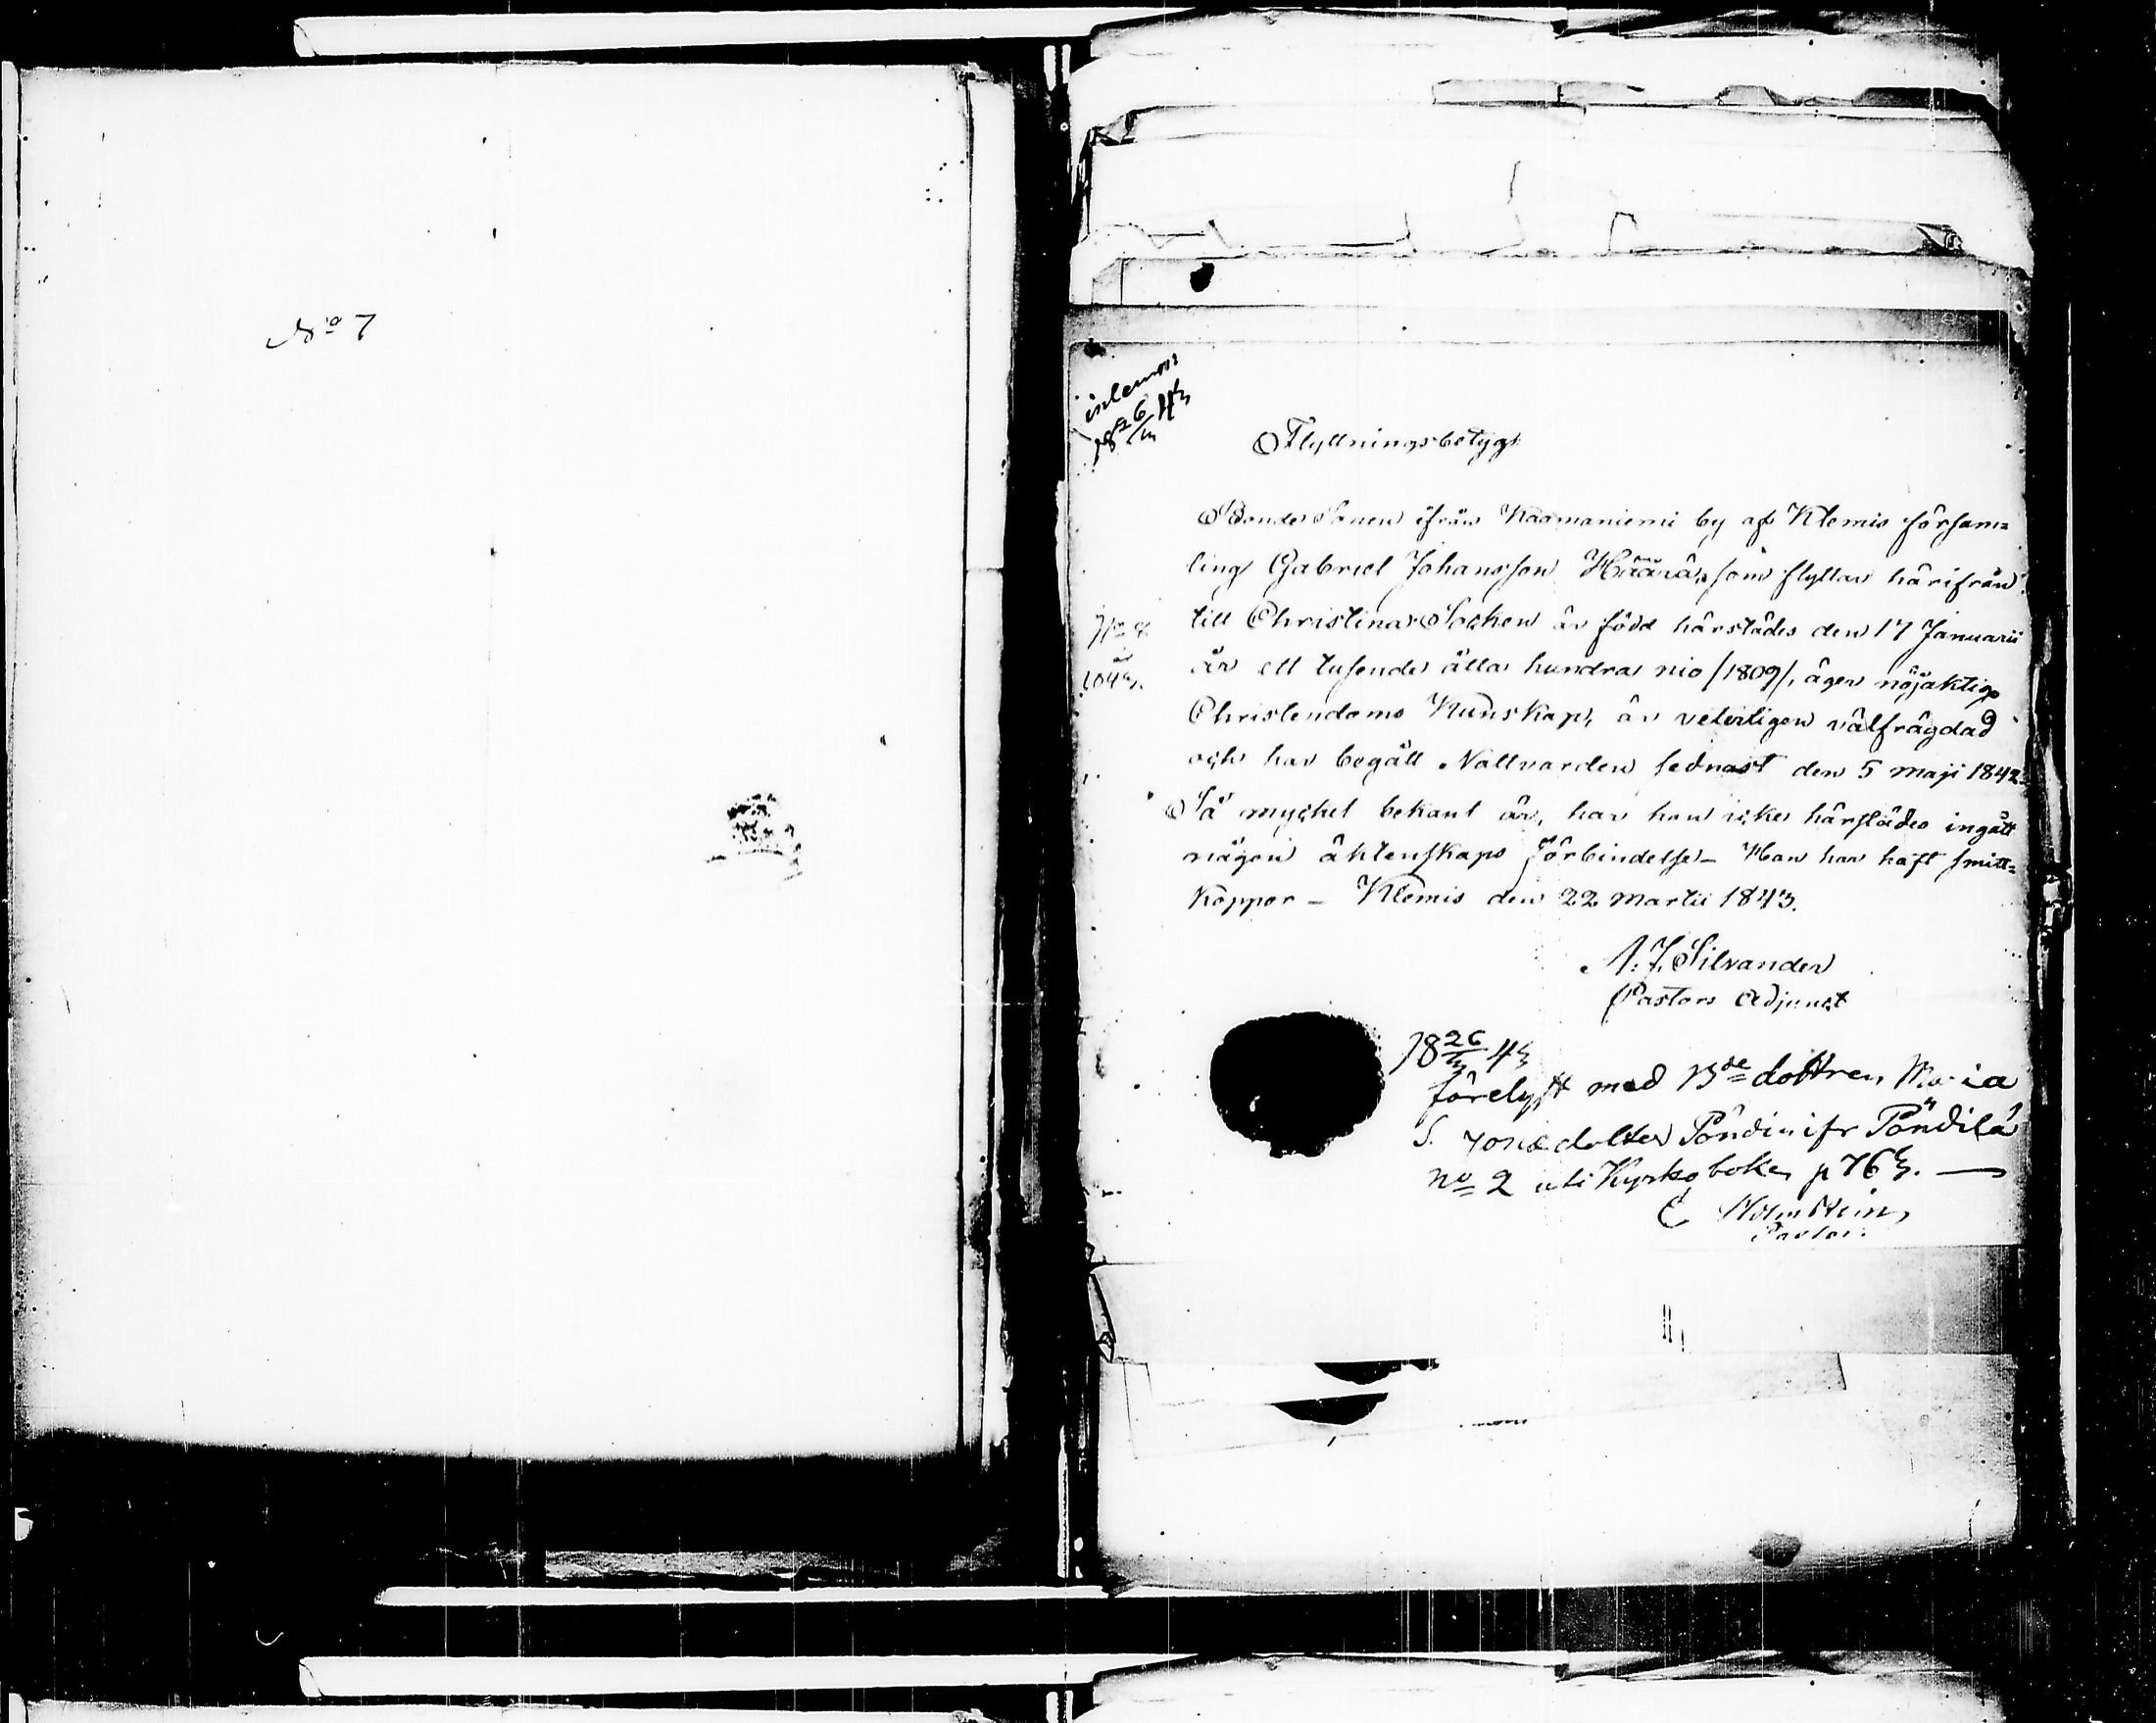 No 7
inlemn:
18 26/3 43
Flyttningsbetyg
Bonde Sonen ifrån Kaamaniemi by af Klemis församling
ling Gabriel Johansson Häärä, som flyttar härifrån
till Christina Socken är född härstädes den 17 Januarii
No 7
år ett tusende åtta hundra nio /1809/, äger nöjaktig
1843.
Christendoms Kunskap, är veterligen välfrägdad
och har begått Nattvarden sednast den 5 maji 1842.
Så mycket bekant är, har han icke härstädes ingått
någon äktenskaps förbindelse – Han har haft smitt=
koppor – Klemis den 22 Martii 1843.
A. J. Silvander
Pastors Adjunct
18 26/3 43
förelyst med Bde dottren Maria
dotter Pöndin ifr Pöndilä
no 2 uti Kyrko boken p 763. —
C Holmstein,
Pastor.